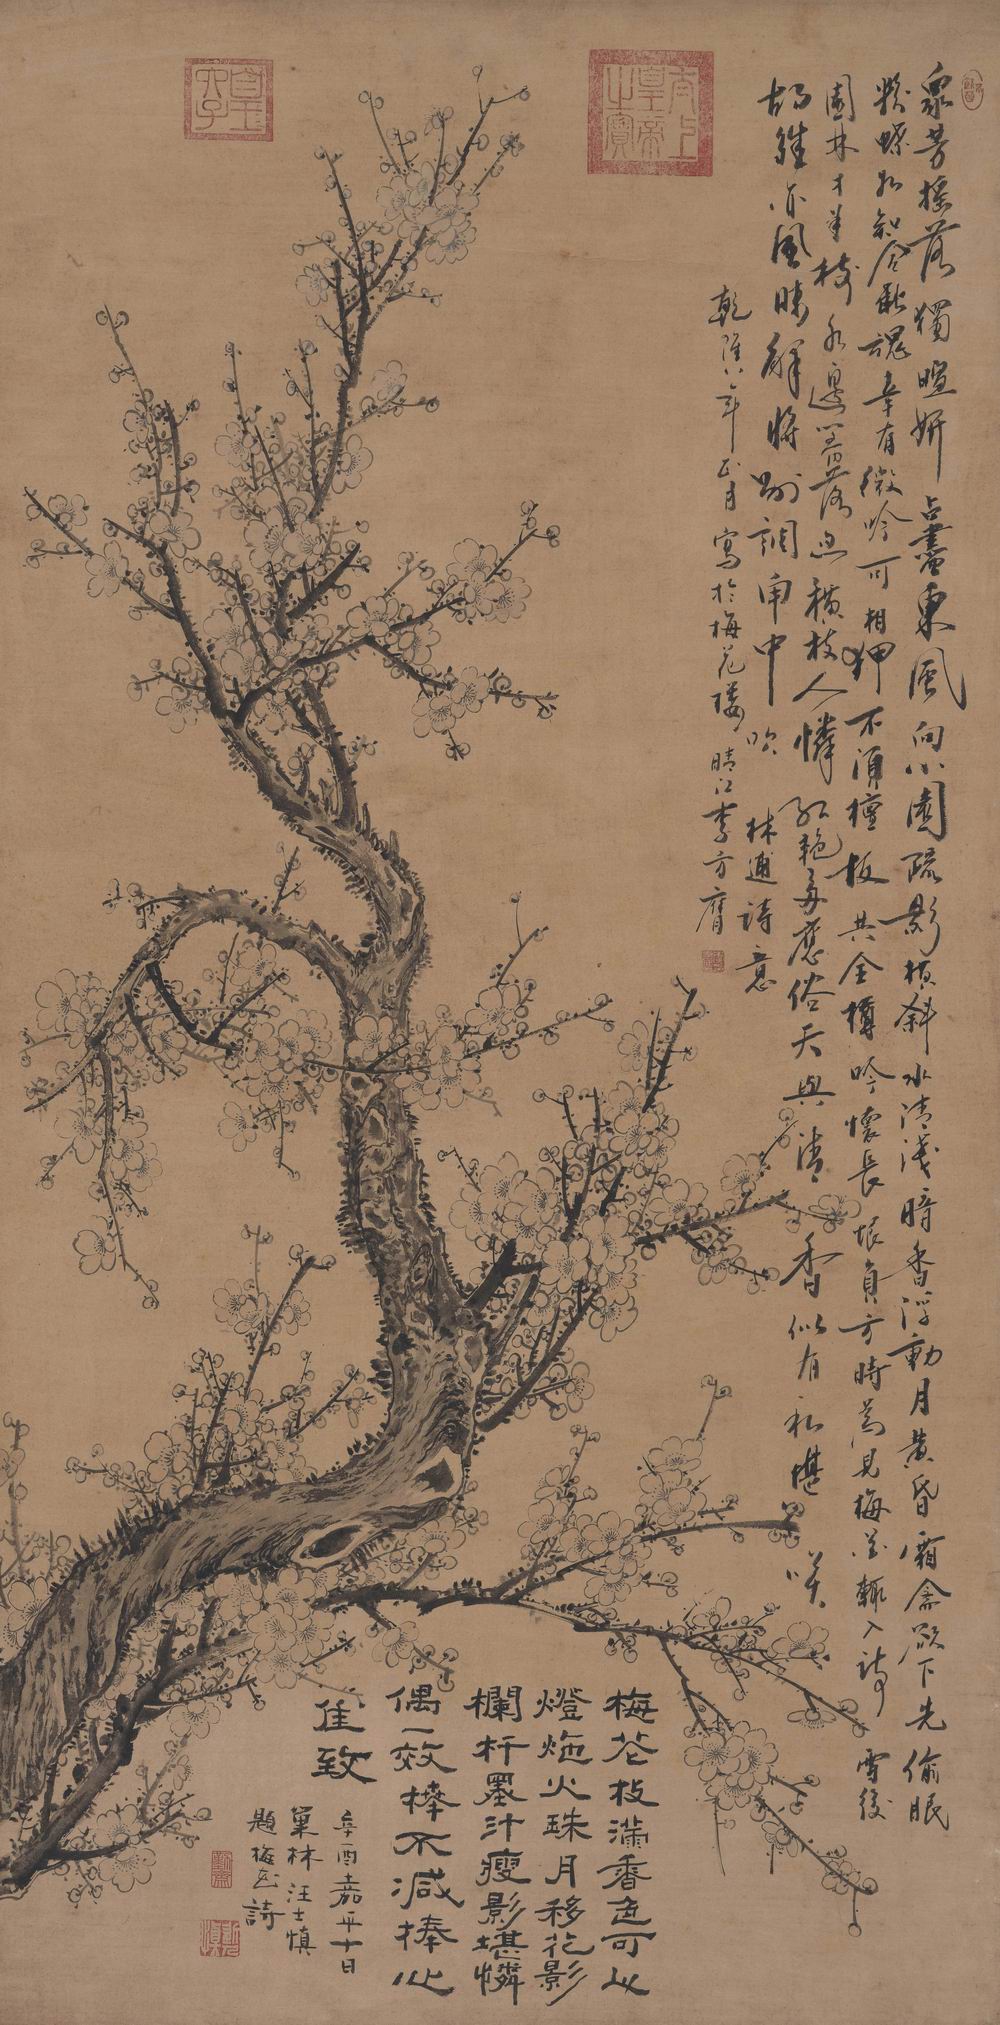 衆芳搖落獨暄妍占盡東風向小園疏影橫斜水清淺暗香浮動月黃昏霜禽欲下先偷眠
粉蝶如知合斷魂幸有微吟可相狎不須檀板共金樽吟懷長恨負方時為見梅花輒入詩雪後
園林才半樹水邊籬落忽橫枝人憐紅艷多應俗天與清香似有私堪笑
胡雛亦風味解將
調角中吹林逋詩意
乾隆八年正月寫於梅花樓晴江李方膺
太上皇帝之寶
梅花枝滿香色可以
燈炧火珠月移花影
欄杆墨汁瘦影堪憐
偶一效棒不減捧心
佳致
辛酉嘉平十日
巢林汪士慎
題梅花詩